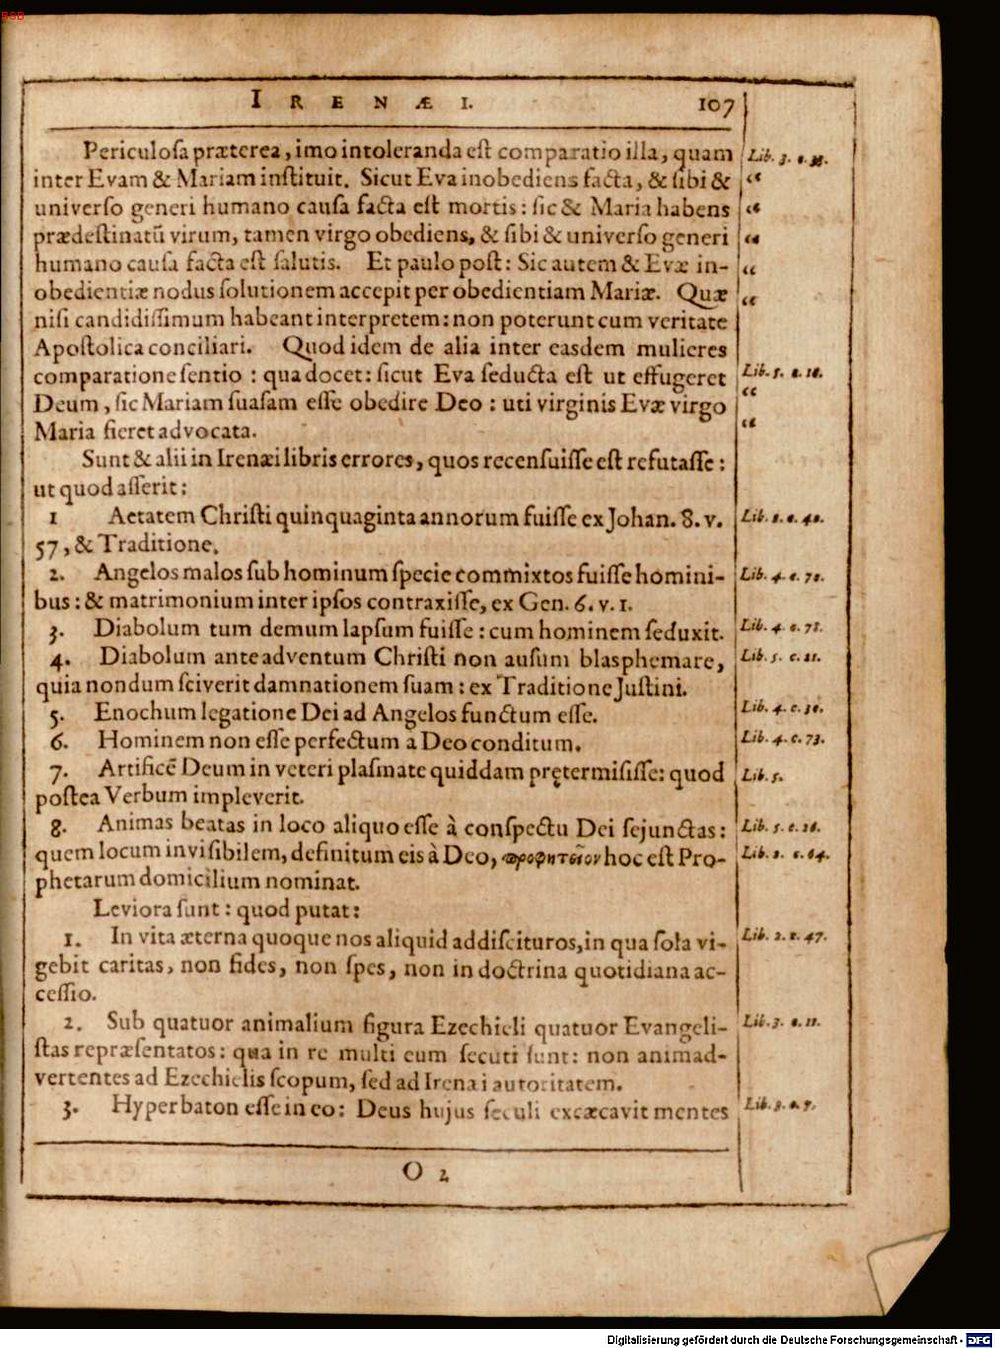 BSB
IRENÆI. 107
Periculoſa præterea, imo intoleranda eſt comparatio illa, quam
inter Evam & Mariam inſtituit. Sicut Eva inobediens facta, & ſibi &
univerſo generi humano cauſa facta eſt mortis: ſic & Maria habens
prædeſtinatū virum, tamen virgo obediens, & ſibi & univerſo generi
humano cauſa facta eſt ſalutis. Et paulo poſt: Sic autem & Evæ in-
obedientiæ nodus ſolutionem accepit per obedientiam Mariæ. Quæ
niſi candidiſſimum habeant interpretem: non poterunt cum veritate
Apoſtolica conciliari. Quod idem de alia inter easdem mulieres
comparatione ſentio: qua docet: ſicut Eva ſeducta eſt ut effugeret
Deum, ſic Mariam ſuaſam eſſe obedire Deo: uti virginis Evæ virgo
Maria fieret advocata.
Sunt & alii in Irenæi libris errores, quos recenſuiſſe eſt refutaſſe:
ut quod aſſerit:
1 Aetatem Chriſti quinquaginta annorum fuiſſe ex Johan. 8. v.
57, & Traditione.
2. Angelos malos ſub hominum ſpecie commixtos fuiſſe homini-
bus: & matrimonium inter ipſos contraxiſſe, ex Gen. 6. v. 1.
3. Diabolum tum demum lapſum fuiſſe: cum hominem ſeduxit.
4. Diabolum ante adventum Chriſti non auſum blasphemare,
quia nondum ſciverit damnationem ſuam: ex Traditione Juſtini.
5. Enochum legatione Dei ad Angelos functum eſſe.
6. Hominem non eſſe perfectum a Deo conditum.
7. Artificē Deum in veteri plaſmate quiddam prętermiſiſſe: quod
poſtea Verbum impleverit.
8. Animas beatas in loco aliquo eſſe à conſpectu Dei ſejunctas:
quem locum inviſibilem, definitum eis à Deo, προφητεῖον hoc eſt Pro-
phetarum domicilium nominat.
Leviora ſunt: quod putat:
1. In vita æterna quoque nos aliquid addiſcituros, in qua ſola vi-
gebit caritas, non fides, non ſpes, non in doctrina quotidiana ac-
ceſſio.
2. Sub quatuor animalium figura Ezechieli quatuor Evangeli-
ſtas repræſentatos: qua in re multi eum ſecuti ſunt: non animad-
vertentes ad Ezechielis ſcopum, ſed ad Irenæi autoritatem.
3. Hyperbaton eſſe in eo: Deus hujus ſeculi excæcavit mentes
O 2
Lib. 3.
“
“
“
“
“
Lib. 5.
“
“
Lib.
Lib. 4. c.
Lib. 4. c.
Lib. 5. c.
Lib. 4. c.
Lib. 4. c. 73.
Lib. 5.
Lib. 5. c.
Lib.
Lib. 2. c. 47.
Lib. 3. c. 11.
Lib. 3. c. 7.
Digitalisierung gefördert durch die Deutsche Forschungsgemeinschaft - DFG